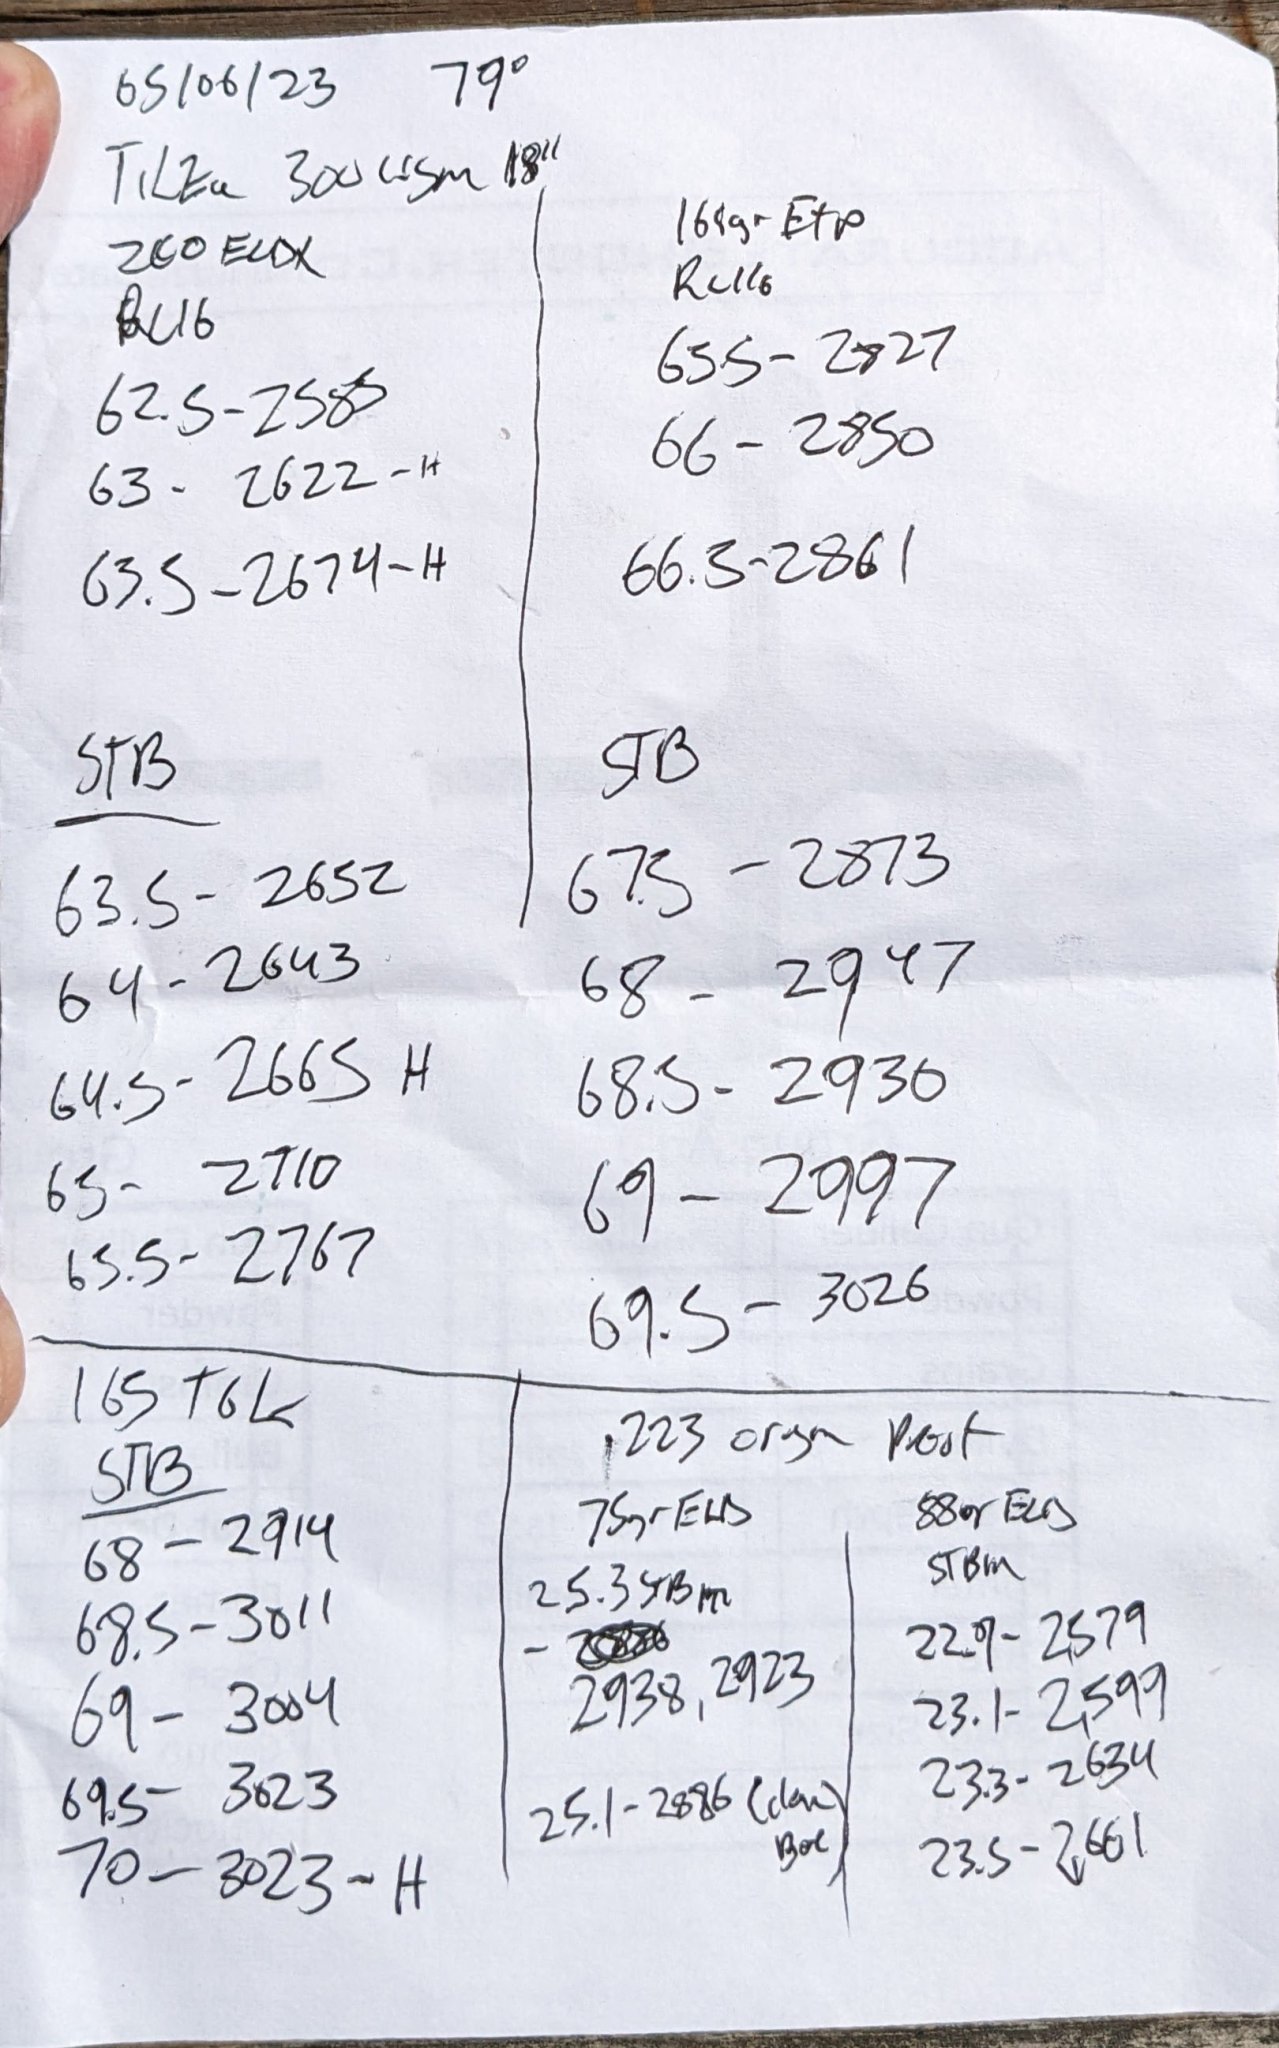 65/06/23 79°
300 WSM 18"
200 ELDX
RL16
62.5-2585
63 - 2622 -H
63.5-2674-H
STB
63.5- 2652
64 - 2643
64.5- 2665 H
65- 2710
65.5- 2767
RL16
65.5- 2827
66 - 2850
66.5-2861
STB
67.5 - 2873
68 - 2947
68.5- 2930
69 - 2997
69.5 - 3026
165 TGK
STB
68 - 2914
68.5-3011
69 - 3004
69.5- 3023
70 - 3023 - H
.223 origin
75gr ELD
25.3 STBm
-
2938, 2923
25.1-2886 (clean
88gr ELD
STBm
22.9- 2,579
23.1- 2,599
23.3- 2634
23.5- 2,661